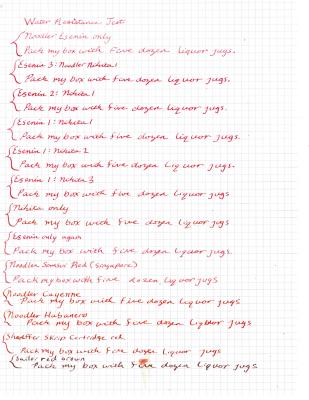 Water Resistance Test
Noodler Esenin only
Pack my box with five dozen liquor jugs.
Esenin 3: Noodler Nikita 1
Pack my box with five dozen liquor jugs.
Esenin 2: Nikita 1
Pack my box with five dozen liquor jugs.
Esenin 1: Nikita 1
Pack my box with five dozen liquor jugs.
Esenin 1: Nikita 2
Pack my box with five dozen liquor jugs.
Esenin 1: Nikita 3
Pack my box with five dozen liquor jugs
Nikita only
Pack my box with five dozen liquor jugs
Esenin only again
Pack my box with five dozen liquor jugs.
Noodler Samsui Red (Singapore)
Pack my box with five dozen liquor jugs
Noodler Cayenne
Pack my box with five dozen liquor jugs
Noodler Habanero
Pack my box with five dozen liquor jugs
Sheaffer Skrip Cartridge red
Pack my box with five dozen liquor jugs
Sailor red brown
Pack my box with five dozen liquor jugs